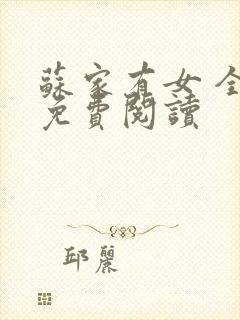 蘇家有女全
免費閱讀
邱麗